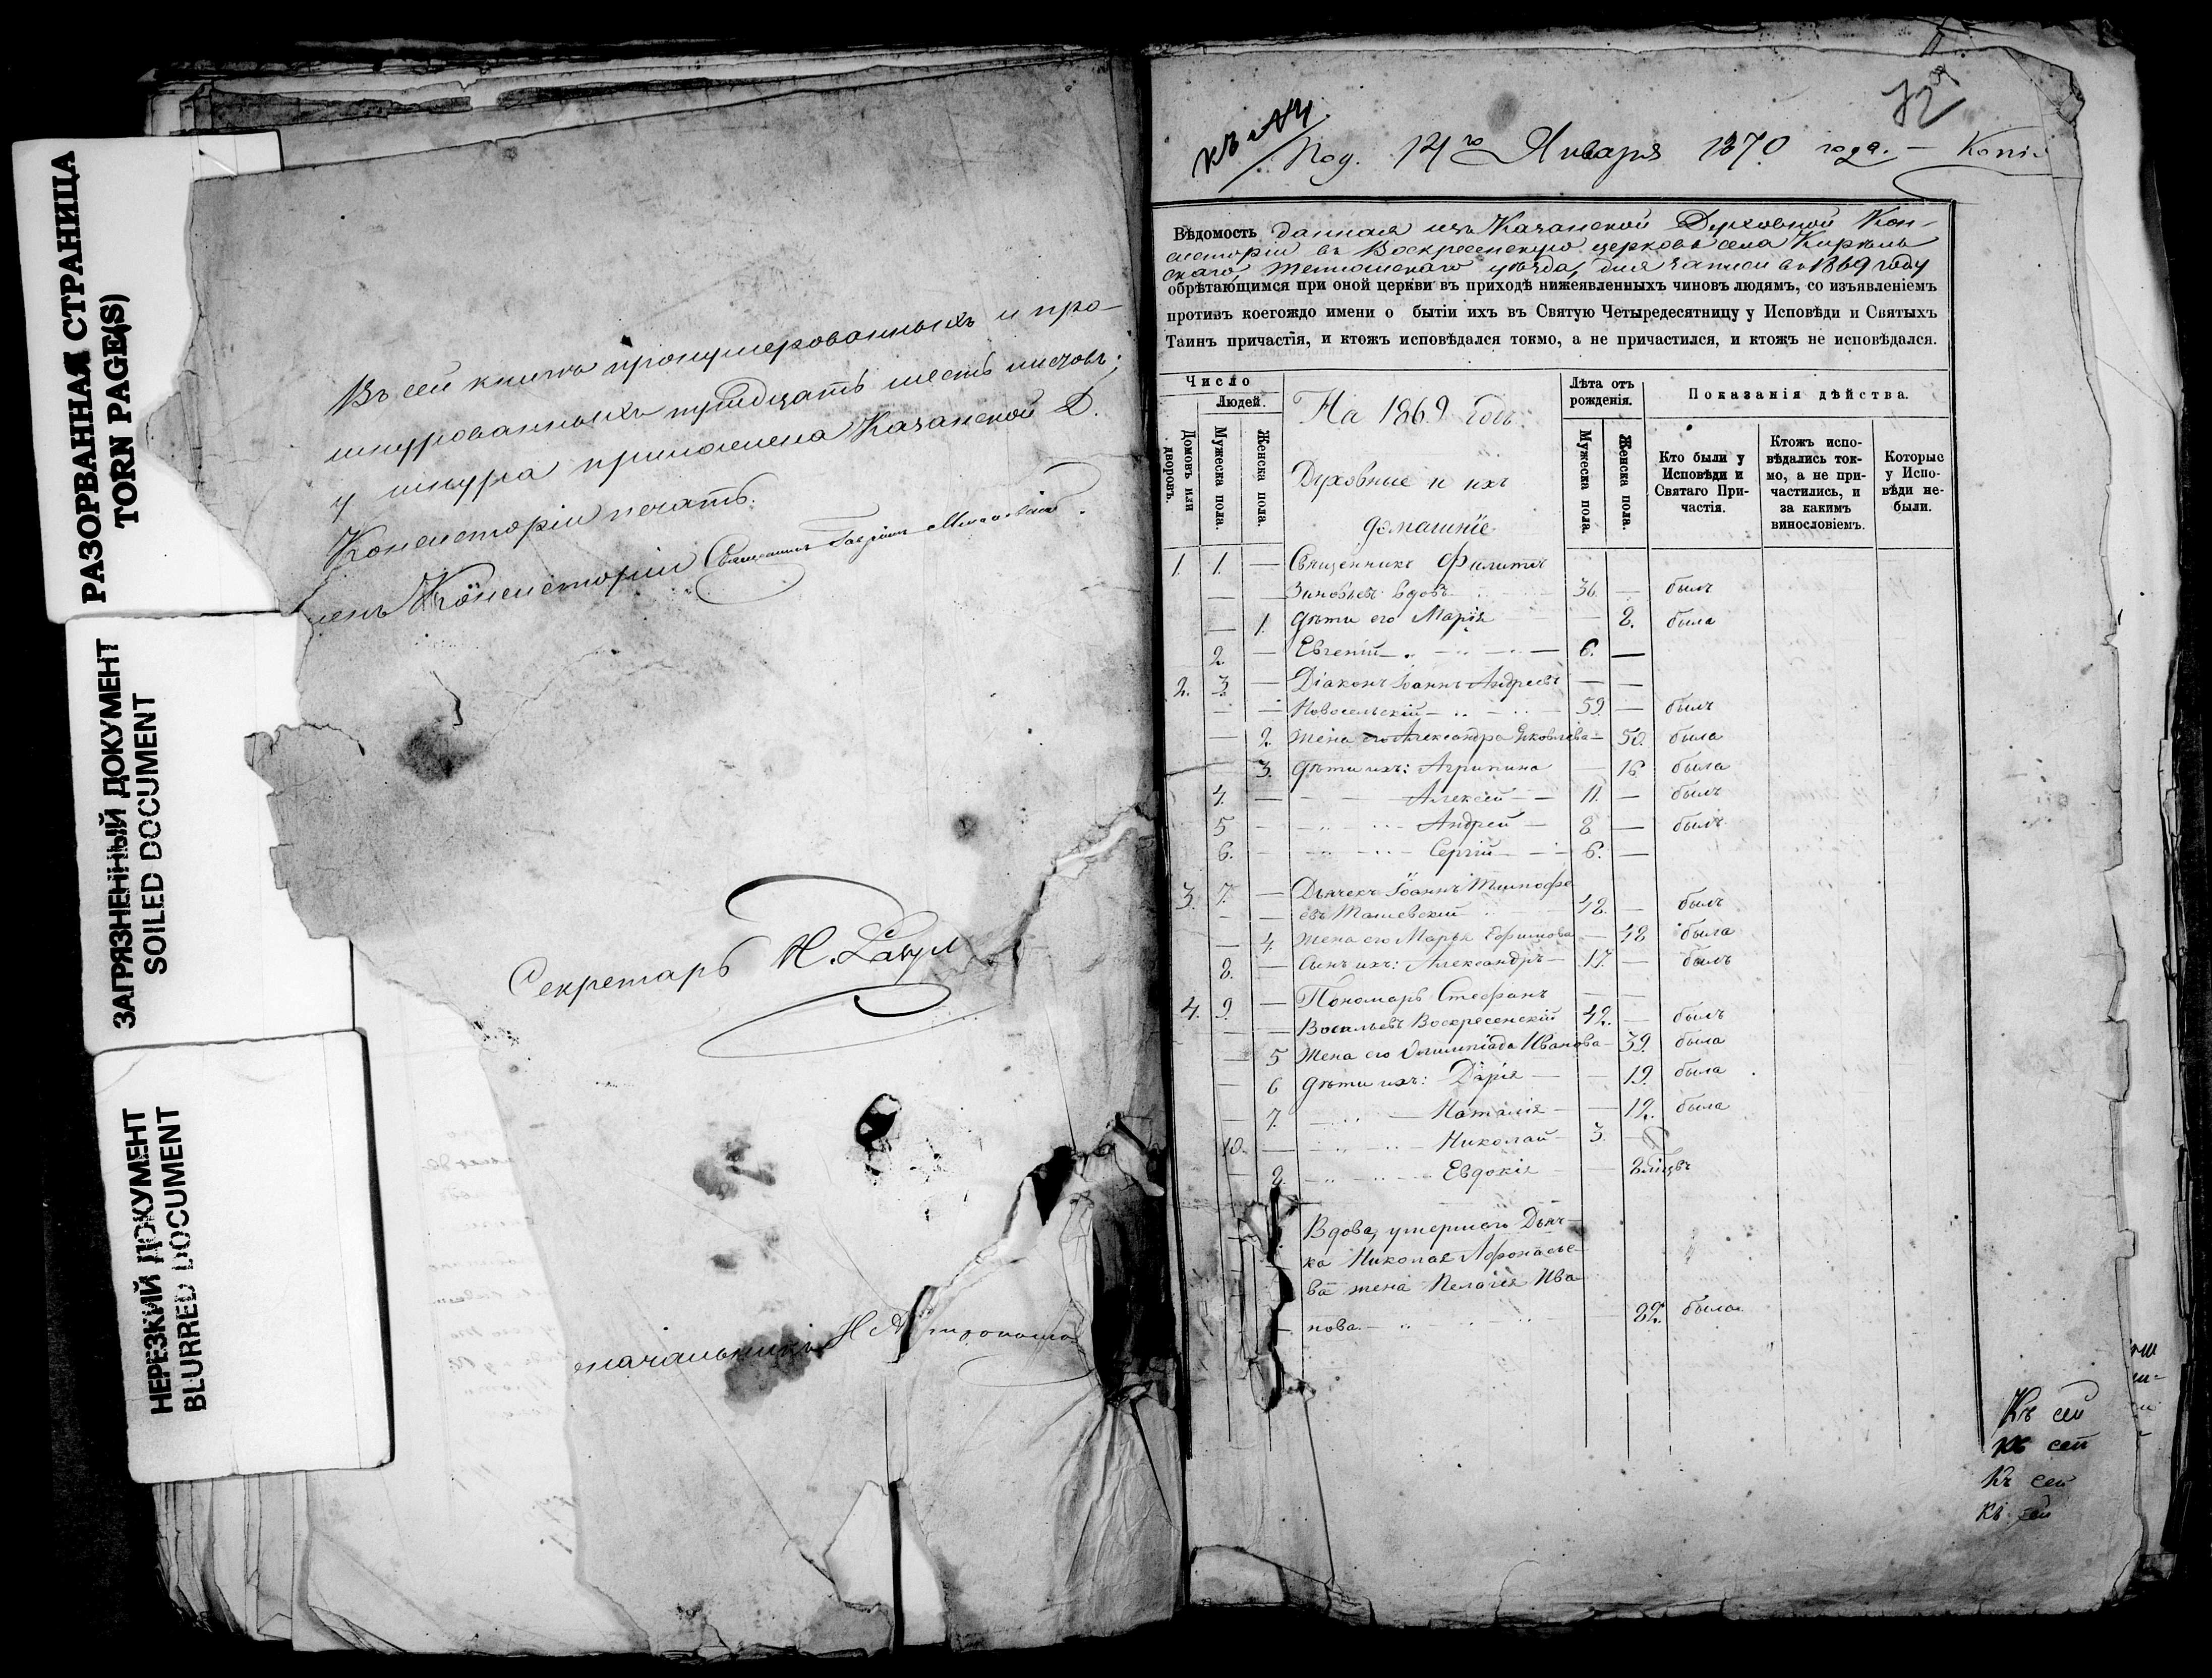 РАЗОРВАННАЯ СТРАНИЦА
TORN PAGE(S)
ЗАГРЯЗНЕННЫЙ ДОКУМЕНТ
SOILED DOCUMENT
НЕРЕЗКИЙ ДОКУМЕНТ
BLURRED DOCUMENT
Въ сей книгѣ пронумерованныхъ и про-
шнурованныхъ тридцать шесть листовъ;
у шнура приложена Казанской Д.
Консисторіи печать.
ленъ Консисторіи Священникъ Гавріилъ
Секретарь Н.
оначальникъ Н
къ №4
Под. 14го Января 1870 года. — Копія
Вѣдомость данная изъ Казанской Духовной Кон-
систоріи въ Воскресенскую церковь села Кирѣль
скаго, Тетюшскаго уѣзда, для записи въ 1869 году
обрѣтающимся при оной церкви въ приходѣ нижеявленныхъ чиновъ людямъ, со изъявленіемъ
противъ коегождо имени о бытіи ихъ въ Святую Четыредесятницу у Исповѣди и Святыхъ
Таинъ причастія, и ктожъ исповѣдался токмо, а не причастился, и ктожъ не исповѣдался.
Число
Людей.
Домовъ или дворовъ.
Мужеска пола.
Женска пола.
На 1869 годъ.
Духовные и ихъ
домашніе
Лѣта отъ рожденія.
Мужеска пола.
Женска пола.
Показанія дѣйства.
Кто были у Исповѣди и Святаго Причастія.
Ктожъ исповѣдались токмо, а не причастились, и за какимъ винословіемъ.
Которые у Исповѣди небыли.
1. 1. — Священникъ Филиппъ
— — Зиновьевъ вдовъ 36. — былъ
— 1. дѣти его Марія — 8. была
2. — Евгеній — 6. —
2. 3. — Діаконъ Іоаннъ Андреевъ — —
— — Новосельскій — 59. — былъ
— 2. Жена его Александра Яковлева — 50. была
— 3. дѣти ихъ: Агрипина — 16. была
4. — Алексѣй — 11. — былъ
5 — Андрей — 8 — былъ
6. — Сергій — 6. —
3. 7. — Дьячекъ Іоаннъ Тимофе
— — евъ Ташевскій 48. — былъ
— 4 Жена его Марья Ефимова — 48 была
8. — Сынъ ихъ: Александръ — 17. — былъ
4. 9. — Пономарь Стефанъ — —
— — Васильевъ Воскресенскій 42. — былъ
— 5 Жена его Олимпіада Иванова — 39. была
— 6 дѣти ихъ: Дарія — — 19. была
— 7. Наталія — — 12. была
10. — Николай — 3. —
8. Евдокія — 8
Вдова, умершаго Дьяч-
ка Николая Афонасье-
ва жена Пелагія Ива
нова. 82. была.
Къ сей
къ сей
Къ сей
Къ сей